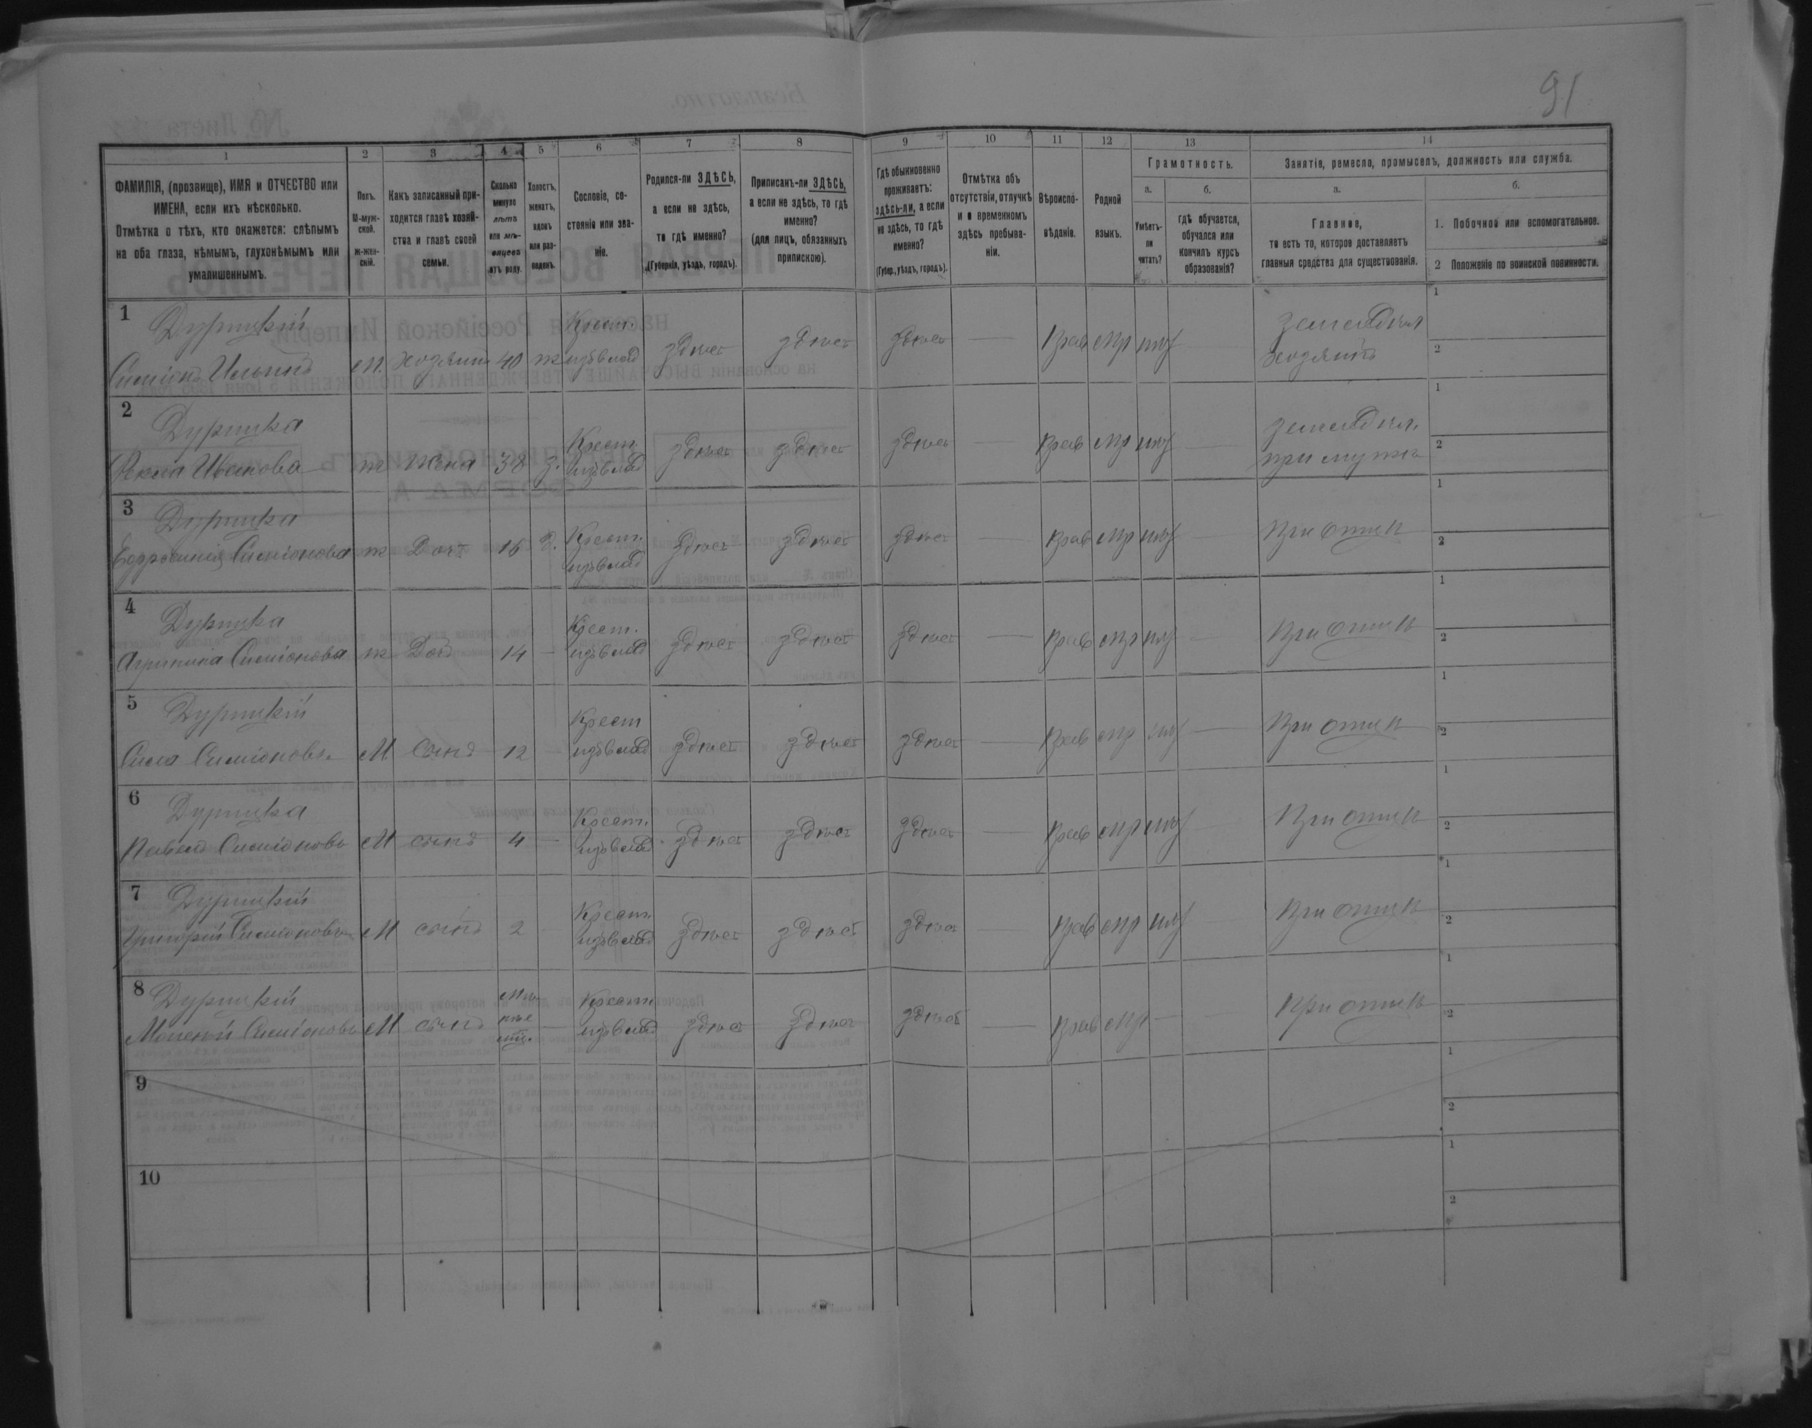 91
1 2 3 4 5 6 7 8 9 10 11 12 13 14
ФАМИЛІЯ, (прозвище), ИМЯ и ОТЧЕСТВО или
ИМЕНА, если ихъ нѣсколько.
Отмѣтка о тѣхъ, кто окажется: слѣпымъ
на оба глаза, нѣмымъ, глухонѣмымъ или
умалишеннымъ.
Полъ.
М-муж-
ской.
Ж-жен-
скій.
Какъ записанный при-
ходится главѣ хозяй-
ства и главѣ своей
семьи.
Сколько
минуло
лѣтъ
или мѣ-
сяцевъ
отъ роду.
Холостъ,
женатъ,
вдовъ
или раз-
веденъ.
Сословіе, со-
стояніе или зва-
ніе.
Родился-ли ЗДѢСЬ,
а если не здѣсь,
то гдѣ именно?
(Губернія, уѣздъ, городъ).
Приписанъ-ли ЗДѢСЬ,
а если не здѣсь, то гдѣ
именно?
(для лицъ, обязанныхъ
припискою).
Гдѣ обыкновенно
проживаетъ:
здѣсь-ли, а если
не здѣсь, то гдѣ
именно?
(Губер., уѣздъ, городъ).
Отмѣтка объ
отсутствіи, отлучкѣ
и о временномъ
здѣсь пребыва-
ніи.
Вѣроиспо-
вѣданіе.
Родной
языкъ.
Грамотность.
а.
Умѣетъ-
ли
читать?
б.
гдѣ обучается,
обучался или
кончилъ курсъ
образованія?
Занятіе, ремесло, промыселъ, должность или служба.
а.
Главное,
то есть то, которое доставляетъ
главныя средства для существованія.
б.
1. Побочное или вспомогательное.
2 Положеніе по воинской повинности.
1 Дурицкій Крест. земледѣл 1
Симіонъ Ильинъ М. хозяинъ 40 ж здѣсь здѣсь здѣсь — Прав хозяинъ 2
2 Дурицка Крест земледѣл. 1
Ивановна ж жена 38 з. здѣсь здѣсь здѣсь — Прав при мужѣ 2
3 Дурицка Крест. 1
Симіонова ж Доч 16 здѣсь здѣсь здѣсь — Прав При отцѣ 2
4 Дурицка Крест. 1
Агрипина Симіонова ж Доч 14 — здѣсь здѣсь здѣсь — Прав При отцѣ 2
5 Дурицкій Крест 1
Симіоновъ М Сынъ 12 — здѣсь здѣсь здѣсь — Прав При отцѣ 2
6 Дурицка Крест. 1
Павелъ Симіоновъ М сынъ 4 — здѣсь здѣсь здѣсь — Прав При отцѣ 2
7 Дурицкій Крест. 1
Григорій Симіоновъ М сынъ 2 — здѣсь здѣсь здѣсь Прав При отцѣ 2
8 Дурицкій Крест 1
Моисей Симіоновъ М сынъ — здѣсь здѣсь здѣсь — Прав — При отцѣ 2
9 1
2
10 1
2